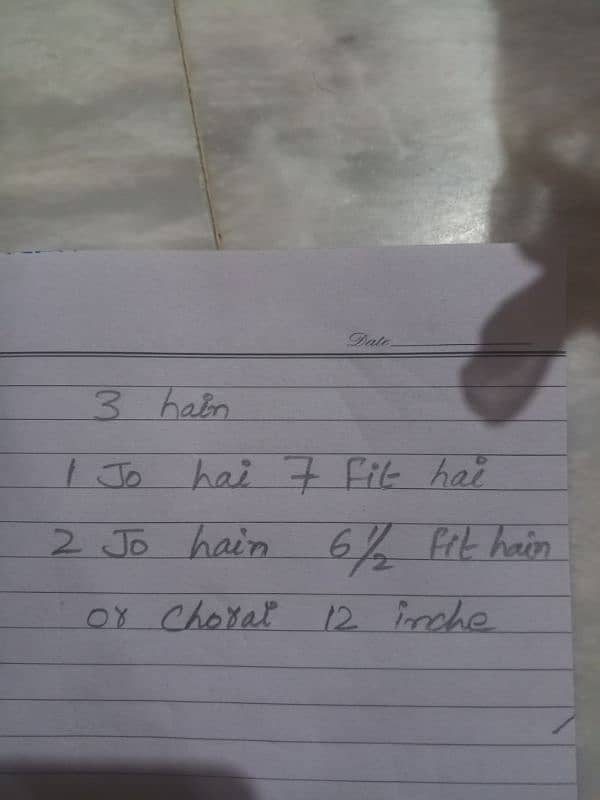 Date
3 hain
1 Jo hai 7 fit hai
2 Jo hain 6 1/2 fit hain
or Chorai 12 inche